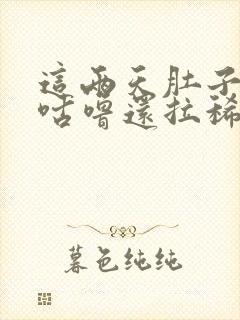 這兩天肚子
咕嚕還拉稀
暮色纯纯